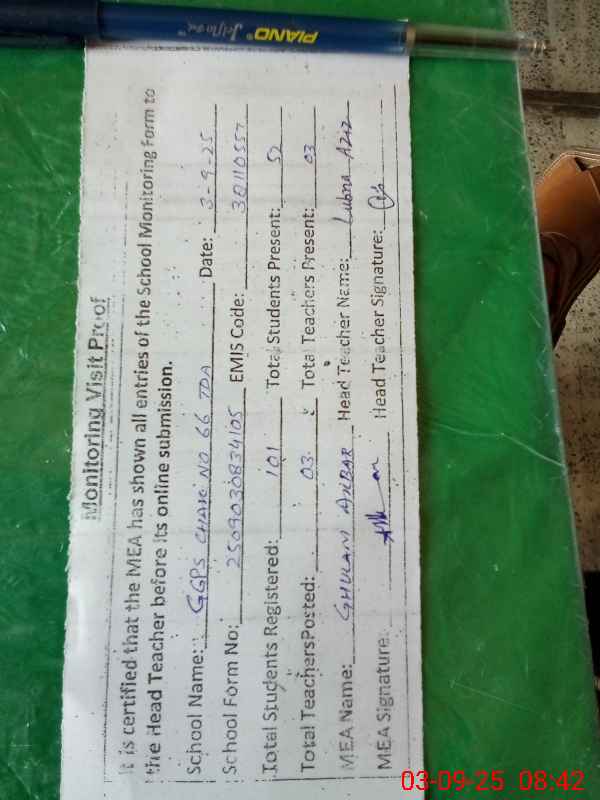 PIANO Jelflo
Monitoring Visit Proof
It is certified that the MEA has shown all entries of the School Monitoring Form to
the Head Teacher before its online submission.
School Name: GGPS CHAK NO 66 TDA Date: 3-9-25
School Form No: 2509030834105 EMIS Code: 30110557
Total Students Registered: 101 Total Students Present: 52
Total Teachers Posted: 03 Total Teachers Present: 03
MEA Name: GHULAM AKBAR Head Teacher Name: Lubna Aziz
MEA Signature: Head Teacher Signature:
03-09-25 08:42